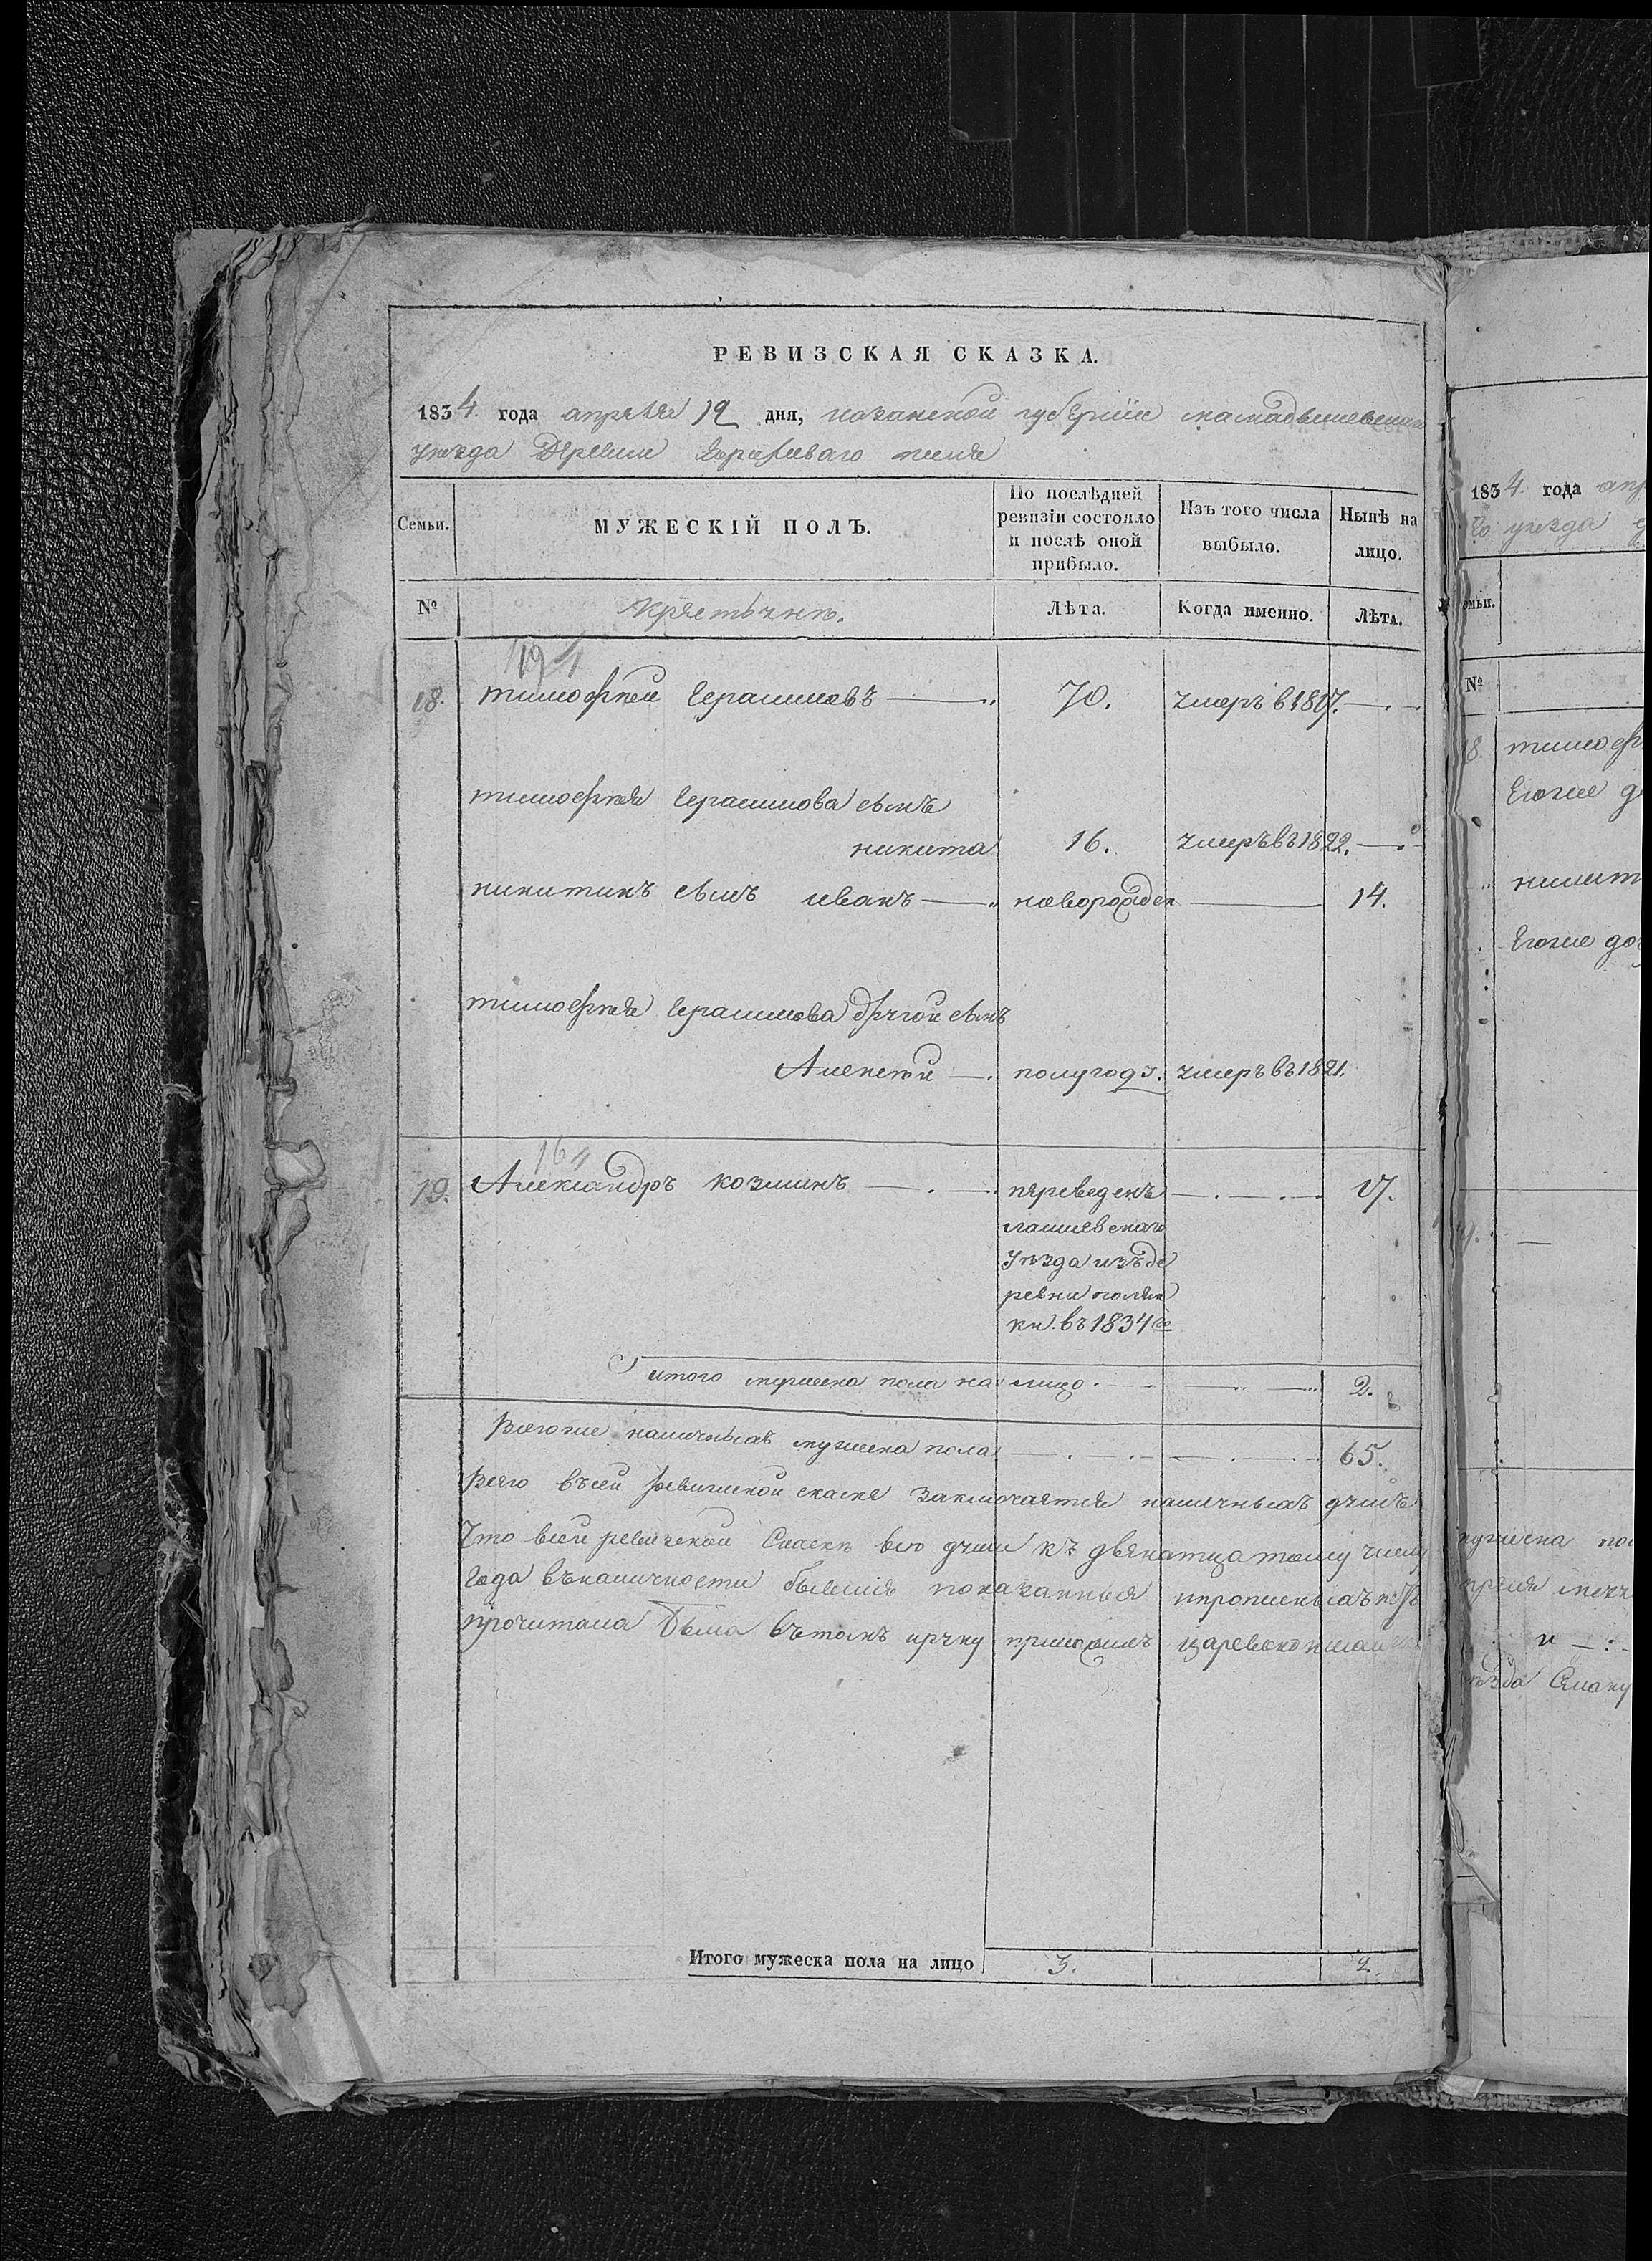 РЕВИЗСКАЯ СКАЗКА.
1834 года апреля 12 дня, казанской губернiи мамадышевскаго
уезда Деревни
Семьи.
МУЖЕСКIЙ ПОЛЪ.
По послѣдней ревизiи состояло и послѣ оной прибыло.
Изъ того числа выбыло.
Нынѣ на лицо.
№
Крестьянъ.
Лѣта.
Когда именно.
Лѣта.
19
18. тимофеи герасимовъ 70. умеръ в 1817.
тимофея герасимова сынъ
никита 16. умеръ въ 1822.
никитинъ сынъ иванъ новорожден 14.
тимофея герасимова другои сынъ
Алексеи полугоду. умеръ въ 1821.
16
19. Александръ козминъ переведенъ 17.
лаишевскаго
уезда изъ де
ревни полян
ки. въ 1834 го
итого мужеска пола на лицо 2.
Всегоже наличныхъ мужеска пола 65.
Всего въ сеи ревижскои скаске заключается наличныхъ душъ
Что в сеи ревижскои Скаске все души къ двенатцатому числу
года въ наличности бывшия показанныя
прочитана была въ томъ и руку приложилъ
Итого мужеска пола на лицо 3. 2.
1834 года апр
го уезда
емьи.
№
18. тимоф
Егоже д
никит
Егоже доч
мужеска пол